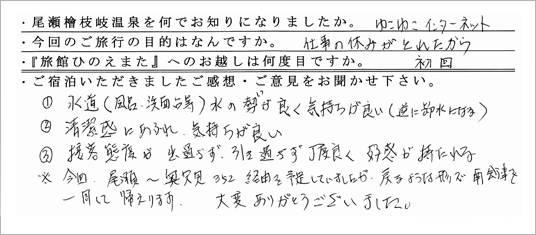 ・尾瀬檜枝岐温泉を何でお知りになりましたか。 ゆこゆこインターネット
・今回のご旅行の目的はなんですか。 仕事の休みがとれたから
・『旅館ひのえまた』へのお越しは何度目ですか。 初回
・ご宿泊いただきましたご感想・ご意見をお聞かせ下さい。
① 水道(風呂、洗面台等)水の勢が良く気持ちが良い(逆に節水になる)
② 清潔感にあふれ、気持ちが良い
③ 接客態度が出過ぎず、引き過ぎず丁度良く 好感が持たれる
※ 今回、尾瀬～奥只見 352 経由を予定していましたが、戻るような形で南会津を
一周して帰えります。 大変ありがとうございました。